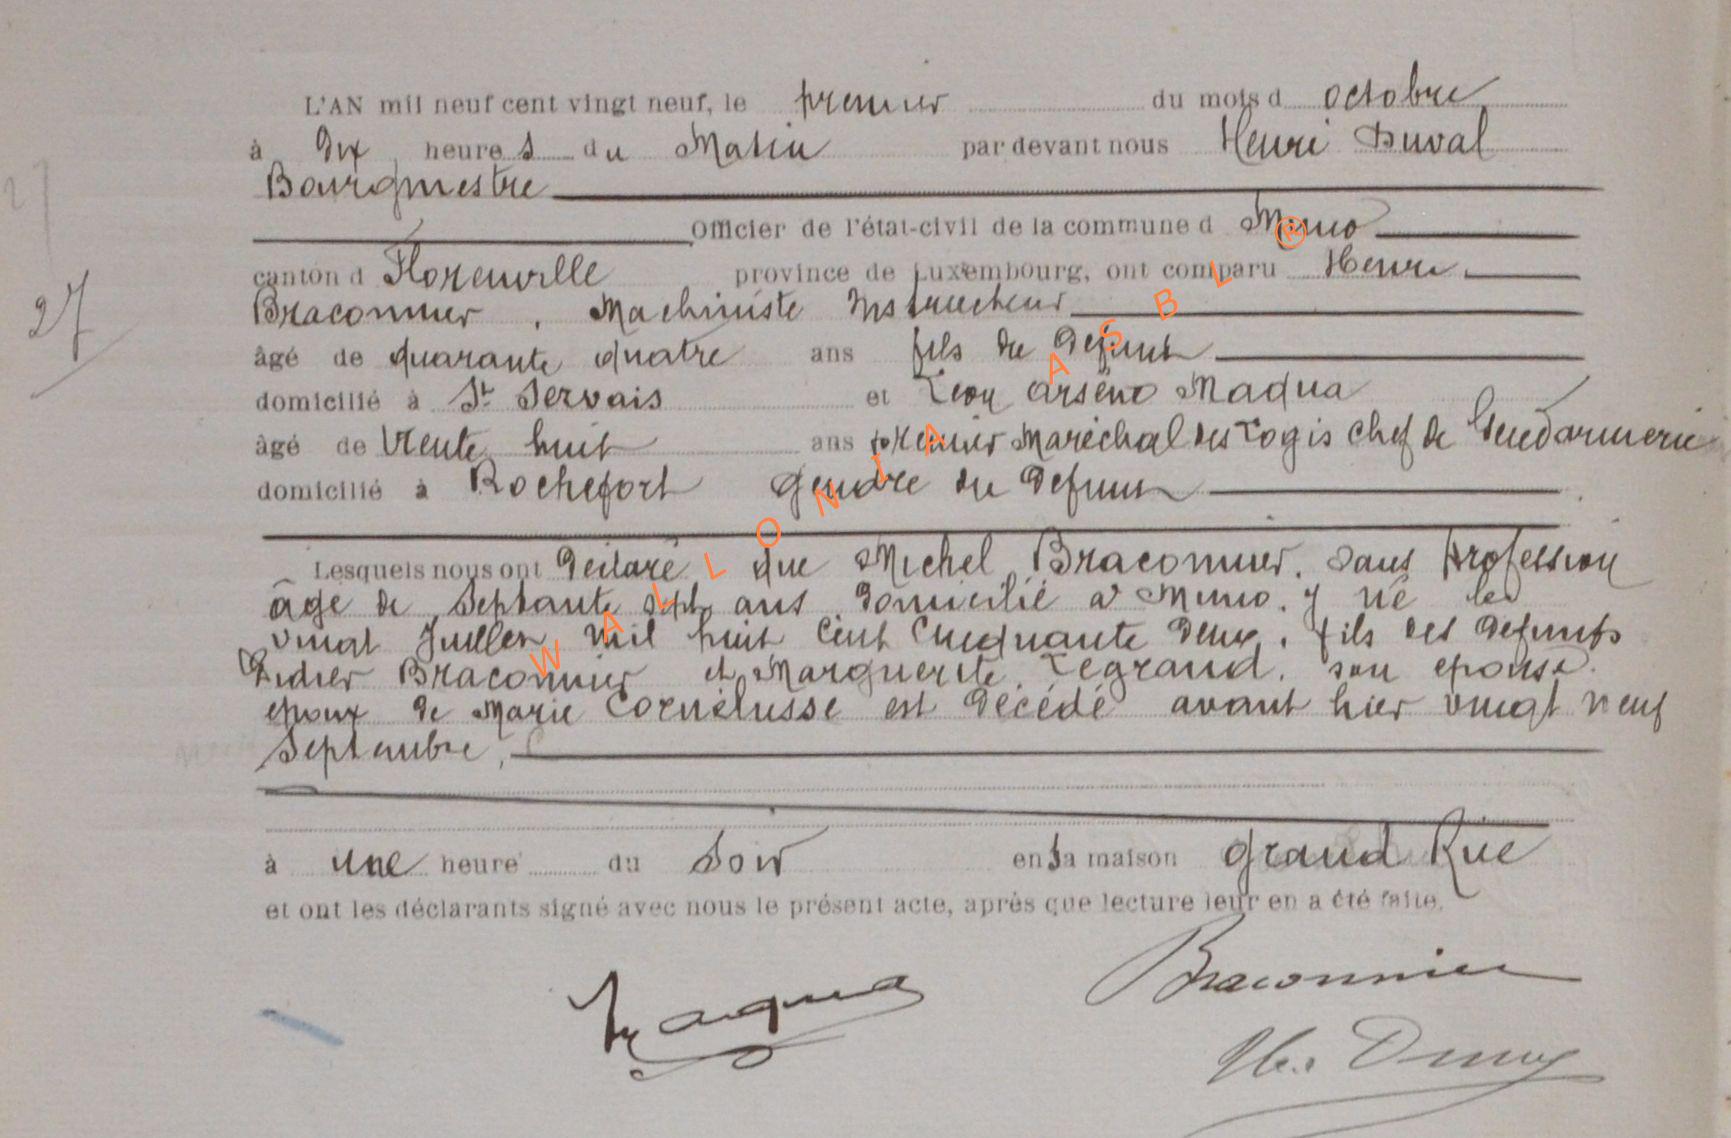 L'AN mil neuf cent vingt neuf, le premier du mois d octobre
à Dix heures du Matin par devant nous Henri Duval
Bourgmestre
Officier de l'état-civil de la commune d Muno
canton d Florenville province de Luxembourg, ont comparu Henri
Braconnier, Machiniste Instructeur
âgé de quarante quatre ans fils du Defunt
domicilié à St Servais et Leon Arsène Maqua
27
âgé de trente huit ans premier Maréchal des Logis chef de Gendarmerie
domicilié à Rochefort gendre du Defunt
Lesquels nous ont Déclaré que Michel Braconnier, sans Profession
âgé de Septante sept ans domicilié à Muno, y né le
vingt Juillet mil huit cent cinquante deux, fils des defunts
Didier Braconnier et Marguerite Legrand, son epouse
epoux de Marie Cornélusse est Décédé avant hier vingt neuf
Septembre,
à une heure du Soir en sa maison grand Rue
et ont les déclarants signé avec nous le présent acte, après que lecture leur en a été faite.
Braconnier
Maqua
WALLONIA ASBL ®